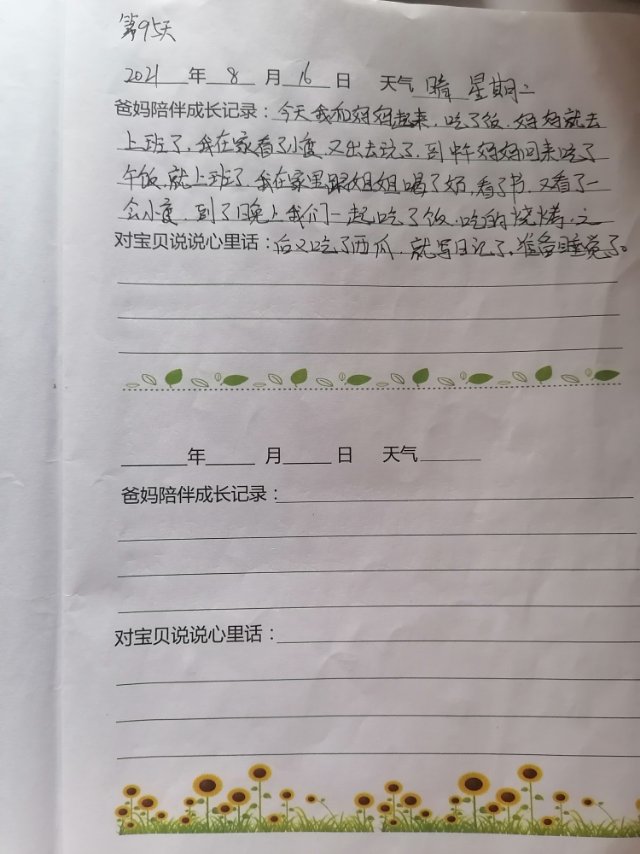 第95天
2021年8月16日 天气 晴 星期二
爸妈陪伴成长记录：今天我和妈妈起来，吃了饭，妈妈就去
上班了，我在家看了小度，又出去玩了，到中午妈妈回来吃了
午饭，就上班了，我在家里跟姐姐喝了奶，看了书，又看了一
会小度，到了晚上我们一起吃了饭，吃的烧烤，之
对宝贝说说心里话：后又吃了西瓜，就写日记了，准备睡觉了。
年 月 日 天气
爸妈陪伴成长记录：
对宝贝说说心里话：